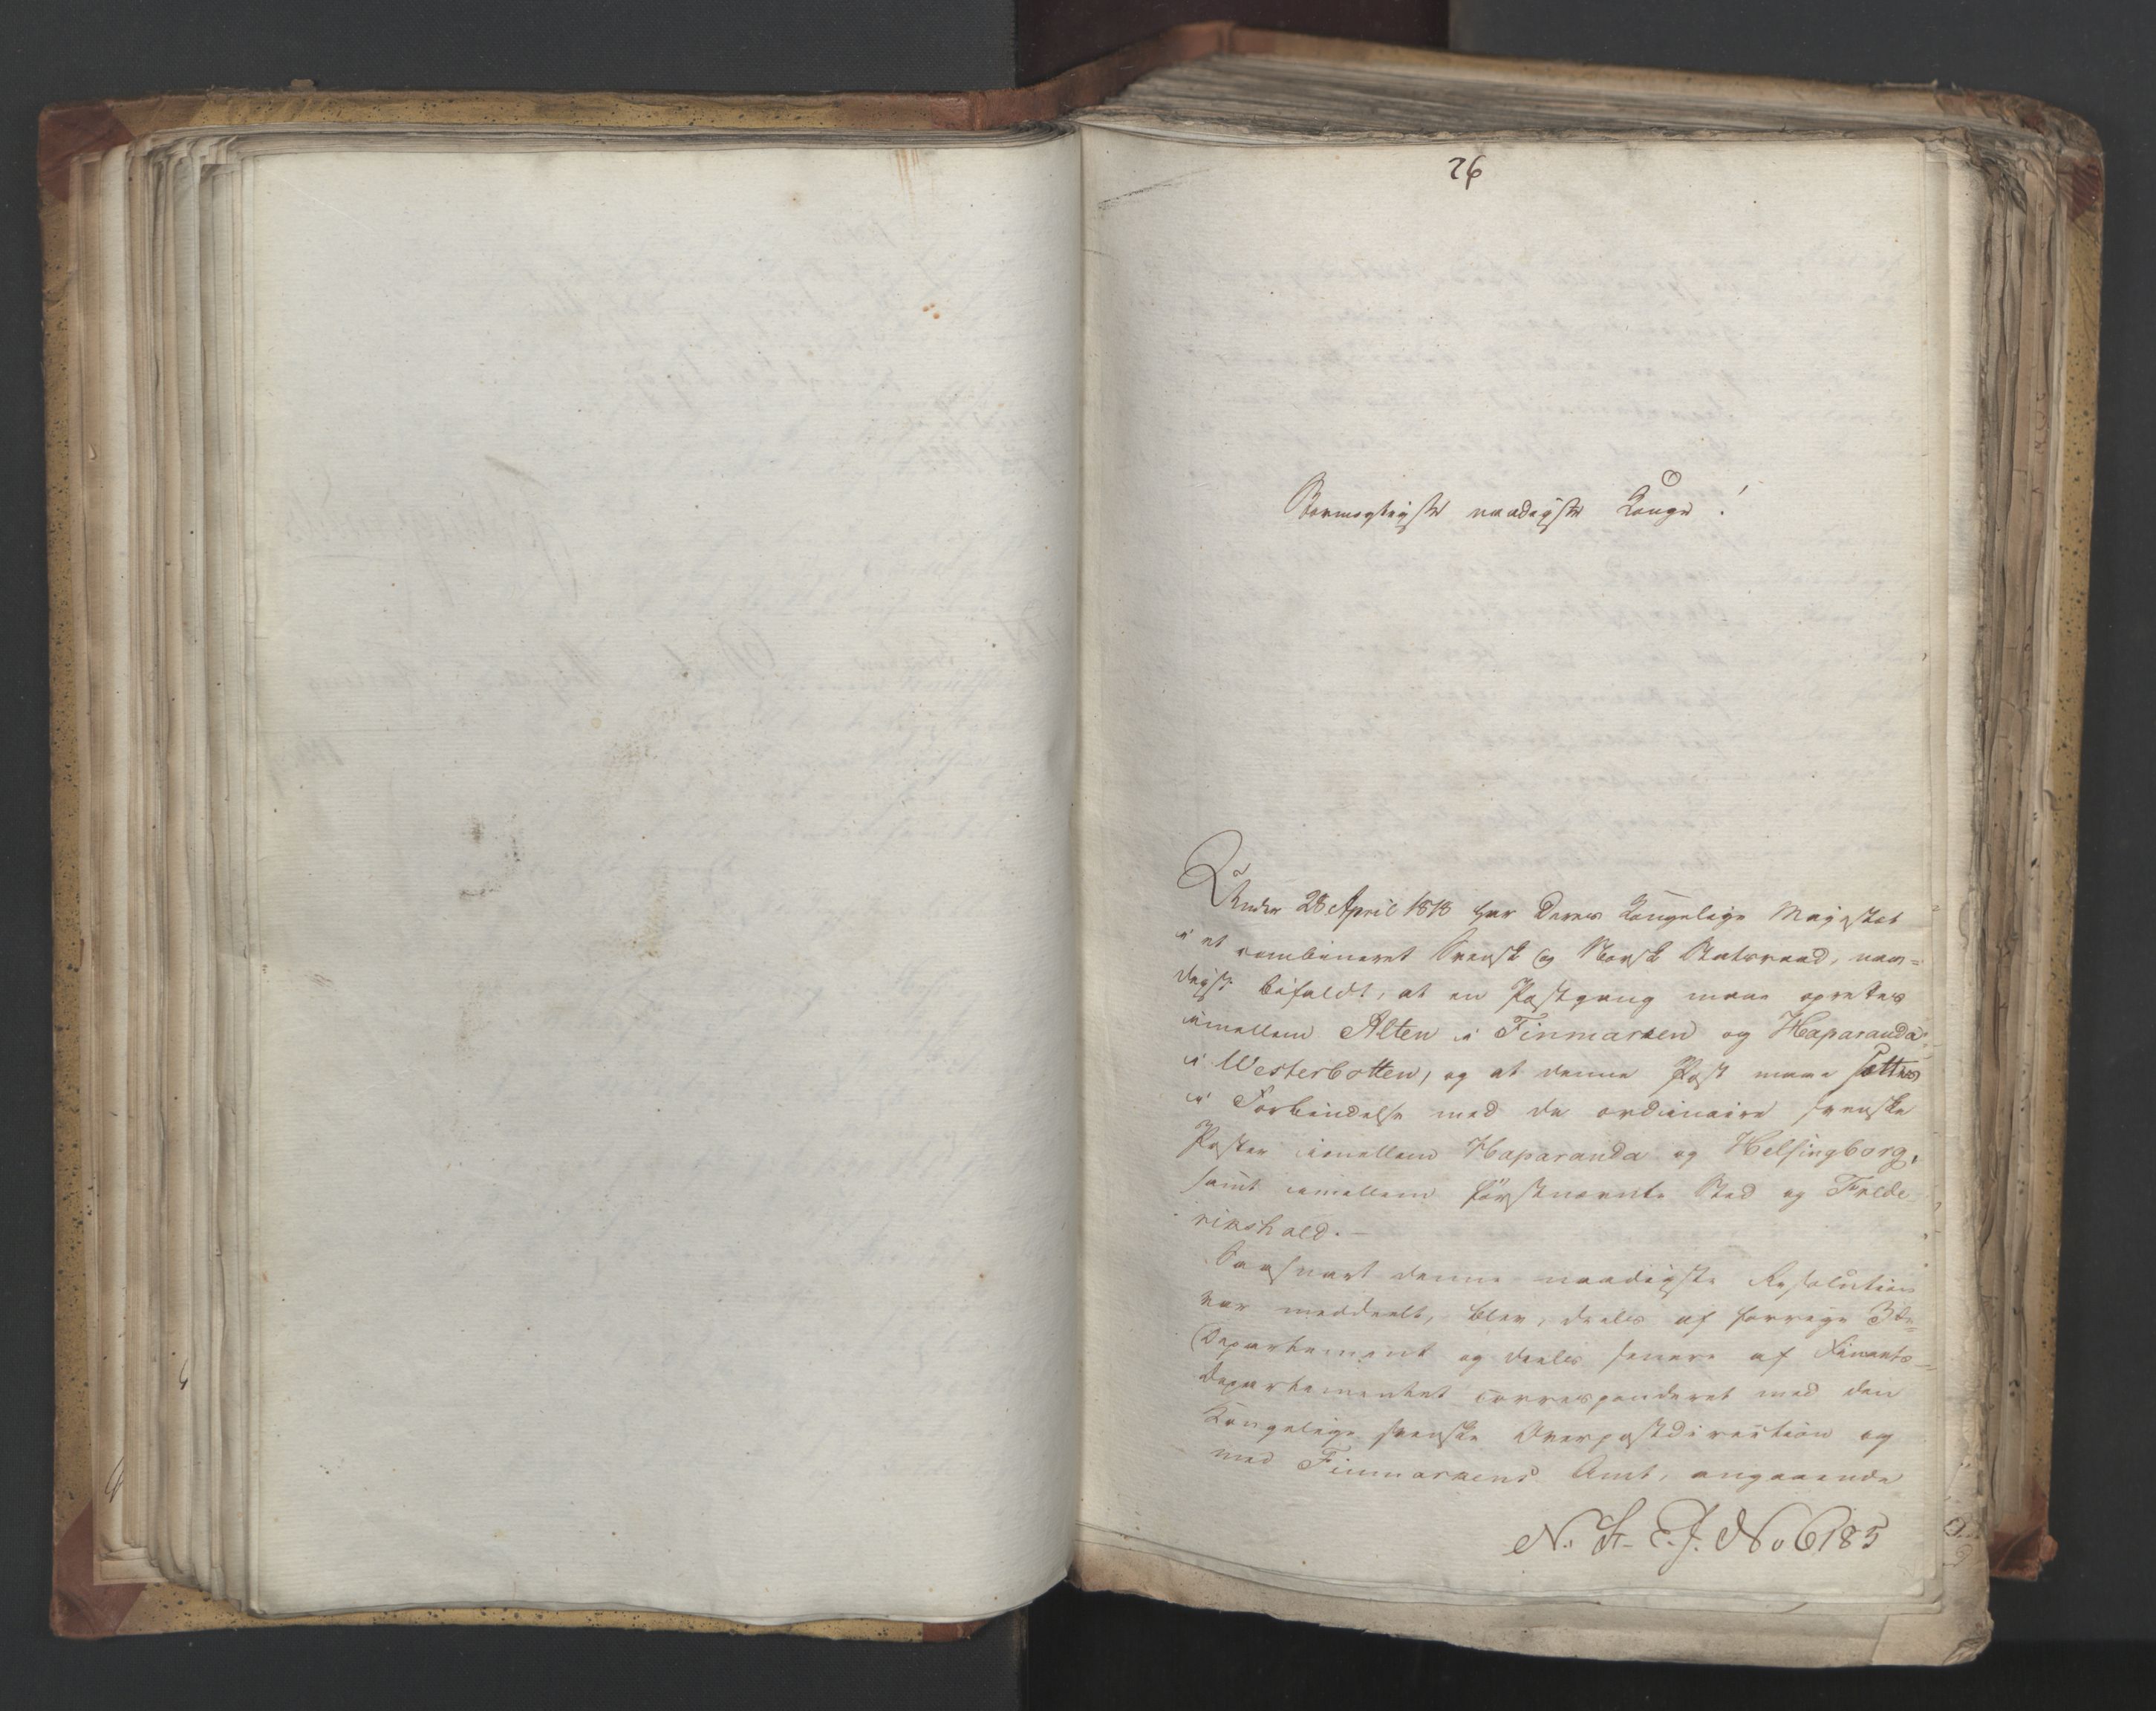 26
Stormægtigste naadigste Konge!
Under 28 April 1818 har Deres Kongelige Majestæt
i et combineret Svensk og Norsk Statsraad, naa=
digst befaldt, at en Postgang maae oprettes
imellem Alten i Finmarken og Haparanda
i Westerbotten, og at denne Post maae sættes
i Forbindelse med de ordinaire svenske
Poster imellem Haparanda og Helsingborg,
samt imellem førstnævnte Stad og Frede
rikshald. —
Saasnart denne naadigste Resolution
var meddeelt, blev, deels af forrige 3die
Departement og deels senere af Finants-
Departementet correspondert med den
Kongelige svenske Overpostdirection og
med Finmarkens Amt, angaaende
N. St. E. J. No 6185